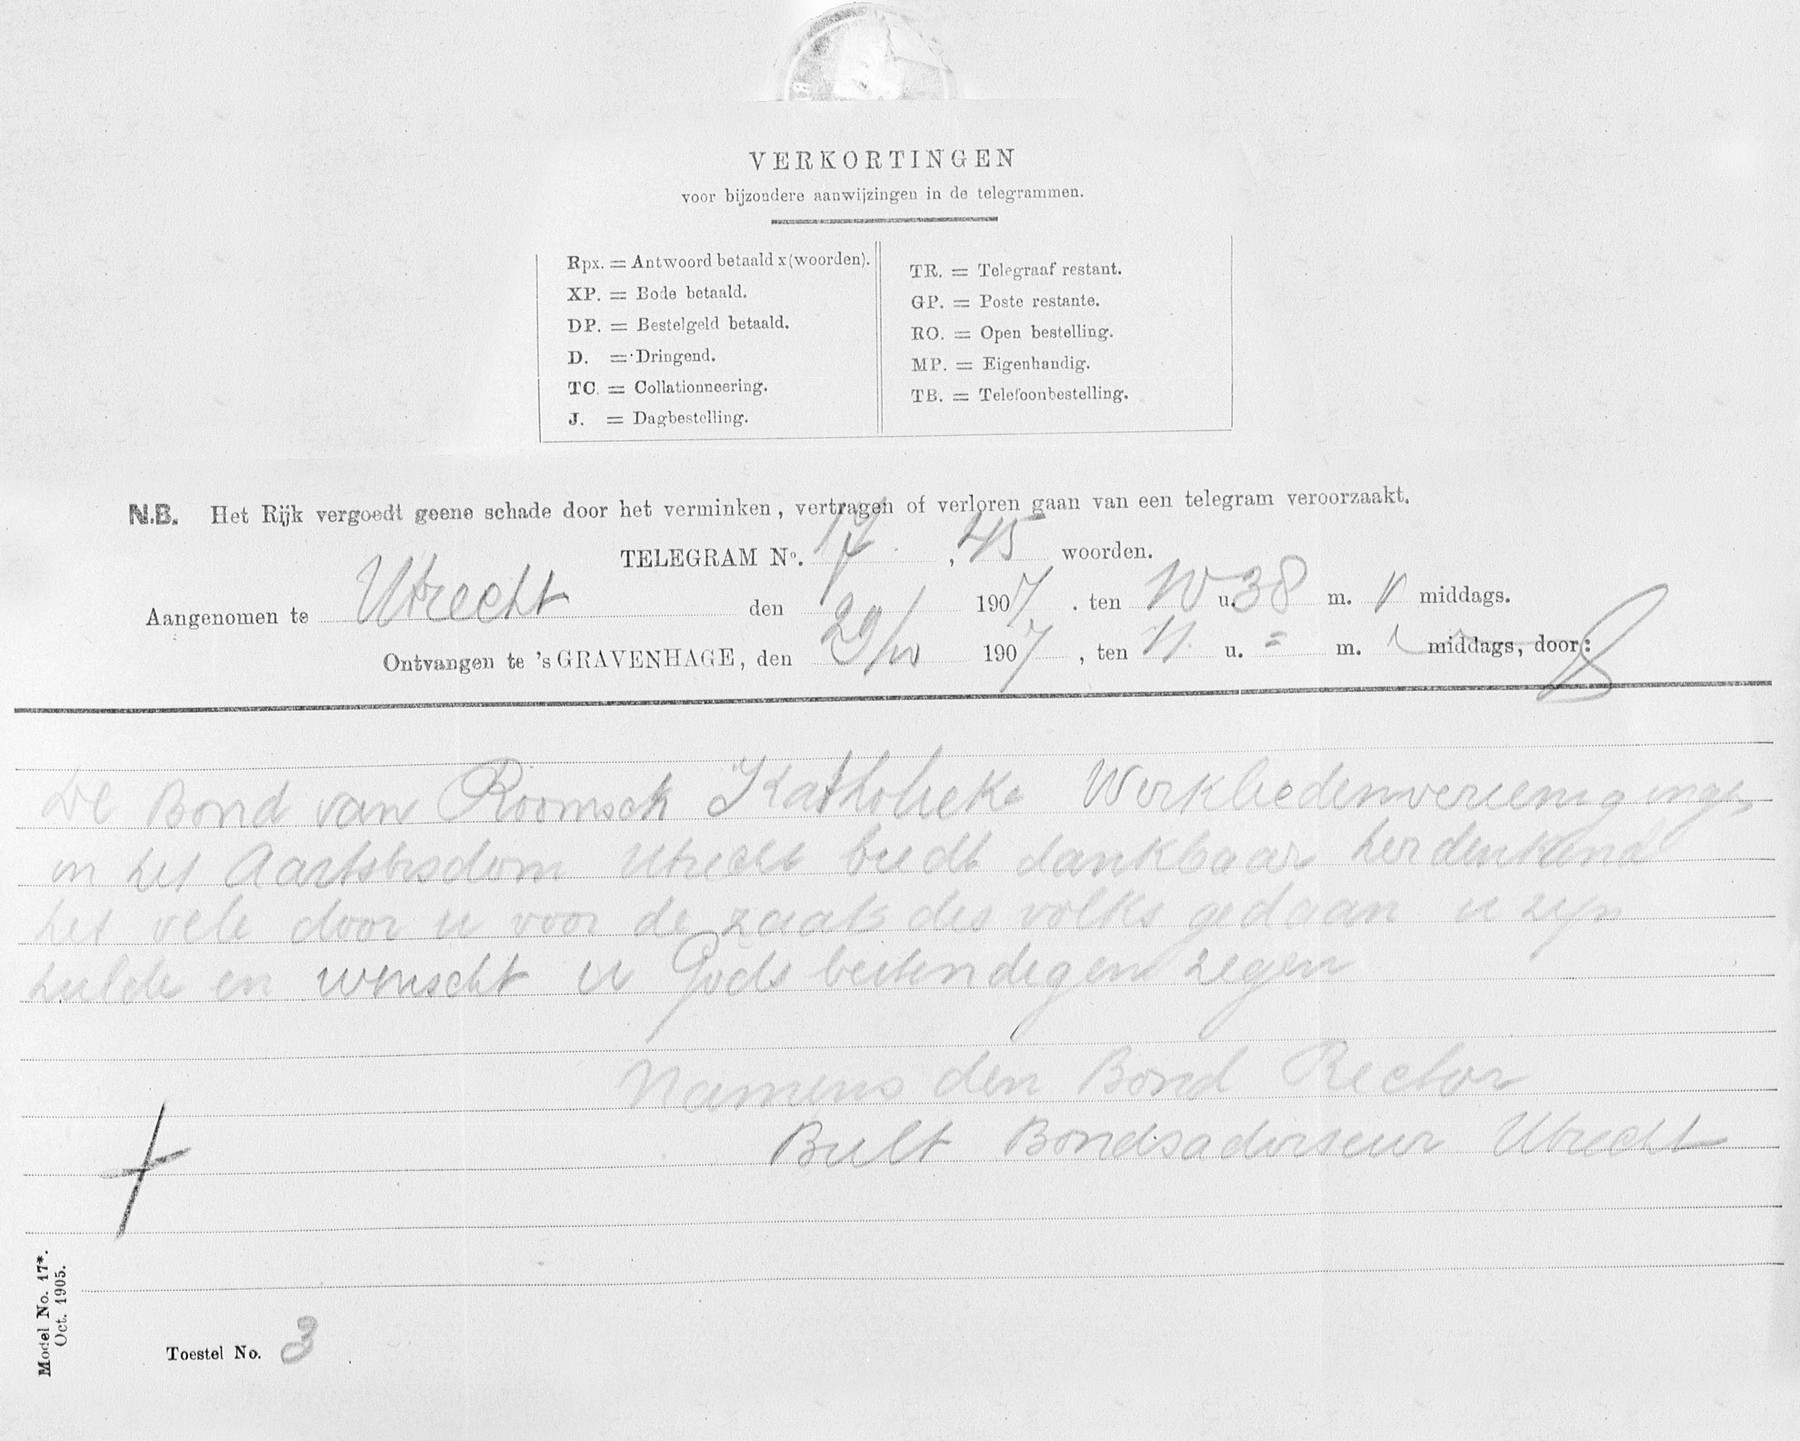 VERKORTINGEN
voor bijzondere aanwijzingen in de telegrammen.
Rpx. = Antwoord betaald x (woorden).
XP. = Bode betaald.
DP. = Bestelgeld betaald.
D. = Dringend.
TC. = Collationneering.
J. = Dagbestelling.
TR. = Telegraaf restant.
GP. = Poste restante.
RO. = Open bestelling.
MP. = Eigenhandig.
TB. = Telefoonbestelling.
N.B. Het Rijk vergoedt geene schade door het verminken, vertragen of verloren gaan van een telegram veroorzaakt.
TELEGRAM No. 17, 45 woorden.
Aangenomen te Utrecht den 29/ 1907. ten 10 u. 38 m. v middags.
Ontvangen te 's GRAVENHAGE, den 29/10 1907, ten 11 u. = m. middags, door:
De Bond van Roomsch Katholieke Werkliedenvereenigingen
in het Aartsbisdom Utrecht biedt dankbaar herdenkend
het vele door u voor de zaak des volks gedaan u zijn
hulde en wenscht u Gods bestendigen zegen
Namens den Bond Rector
Bult Bondsadviseur Utrecht
Model No. 17*.
Oct. 1905.
Toestel No. 3